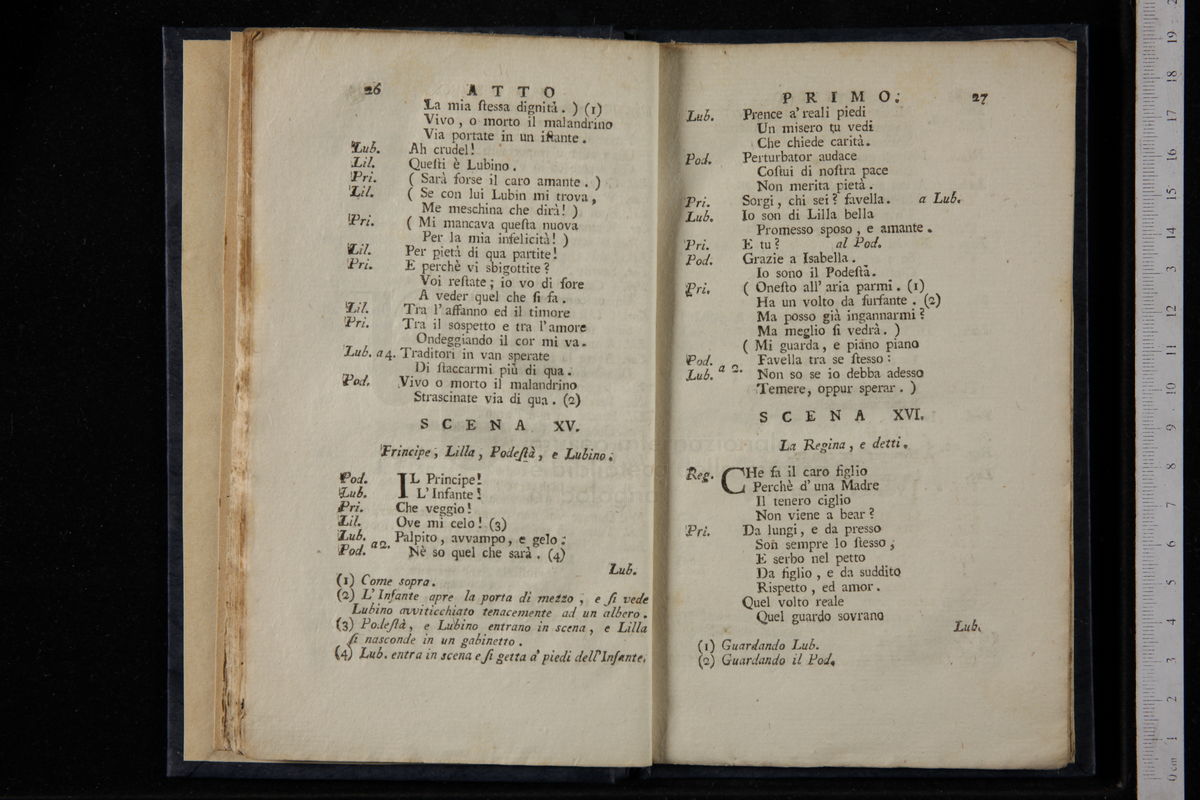 26 ATTO
La mia ſteſſa dignità. ) (1)
Vivo, o morto il malandrino
Via portate in un iſtante.
Lub. Ah crudel!
Lil. Queſti è Lubino.
Pri. ( Sarà forse il caro amante. )
Lil. ( Se con lui Lubin mi trova,
Me meschina che dirà! )
Pri. ( Mi mancava queſta nuova
Per la mia infelicità! )
Lil. Per pietà di qua partite!
Pri. E perchè vi sbigottite?
Voi reſtate; io vo di fore
A veder quel che ſi fa.
Lil. Tra l'affanno ed il timore
Pri. Tra il sospetto e tra l'amore
Ondeggiando il cor mi va.
Lub. a 4. Traditori in van sperate
Di ſtaccarmi più di qua.
Pod. Vivo o morto il malandrino
Strascinate via di qua. (2)
SCENA XV.
Principe, Lilla, Podeſtà, e Lubino.
Pod. IL Principe!
Lub. L'Infante!
Pri. Che veggio!
Lil. Ove mi celo! (3)
Lub. Pod. a 2. Palpito, avvampo, e gelo:
Nè so quel che sarà. (4)
Lub.
(1) Come sopra.
(2) L'Infante apre la porta di mezzo, e ſi vede
Lubino avviticchiato tenacemente ad un albero.
(3) Podeſtà, e Lubino entrano in scena, e Lilla
ſi nasconde in un gabinetto.
(4) Lub. entra in scena e ſi getta a' piedi dell'Infante.
PRIMO. 27
Lub. Prence a' reali piedi
Un misero tu vedi
Che chiede carità.
Pod. Perturbator audace
Coſtui di noſtra pace
Non merita pietà.
Pri. Sorgi, chi sei? favella. a Lub.
Lub. Io son di Lilla bella
Promesso sposo, e amante.
Pri. E tu? al Pod.
Pod. Grazie a Isabella.
Io sono il Podeſtà.
Pri. ( Oneſto all'aria parmi. (1)
Ha un volto da furfante. (2)
Ma posso già ingannarmi?
Ma meglio ſi vedrà. )
( Mi guarda, e piano piano
Pod. Lub. a 2. Favella tra se ſtesso:
Non so se io debba adesso
Temere, oppur sperar. )
SCENA XVI.
La Regina, e detti.
Reg. CHe fa il caro figlio
Perchè d'una Madre
Il tenero ciglio
Non viene a bear?
Pri. Da lungi, e da presso
Son sempre lo ſtesso,
E serbo nel petto
Da figlio, e da suddito
Rispetto, ed amor.
Quel volto reale
Quel guardo sovrano
Lub.
(1) Guardando Lub.
(2) Guardando il Pod.
0 cm 1 2 3 4 5 6 7 8 9 10 11 12 13 14 15 16 17 18 19